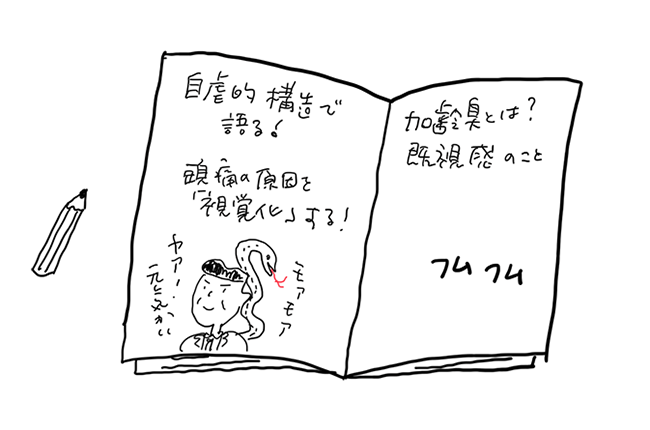 自虐的構造で
語る!
頭痛の原因を
「視覚化」する!
ヤアー!
元気かい
モアモア
加齢臭とは?
既視感のこと
フムフム